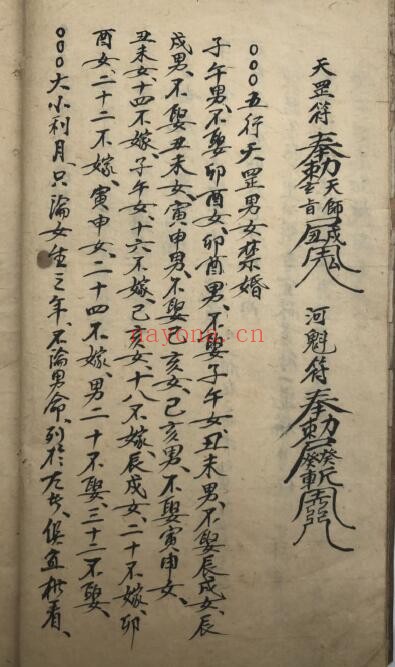 天罡符 奉勅 天師 河魁符 奉勅 斬
○○○五行天罡男女禁婚
子午男、不娶卯酉女、卯酉男、不娶子午女、丑未男、不娶辰戌女、辰
戌男、不娶丑未女、寅申男、不娶己亥女、己亥男、不娶寅申女、
丑未女、十四不嫁、子午女、十六不嫁、己亥女、十八不嫁、辰戌女、二十不嫁、卯
酉女、二十二不嫁、寅申女、二十四不嫁、男二十不娶、三十二不娶、
○○○大小利月、只論女生之年、不論男命、列於左
gayong.cn